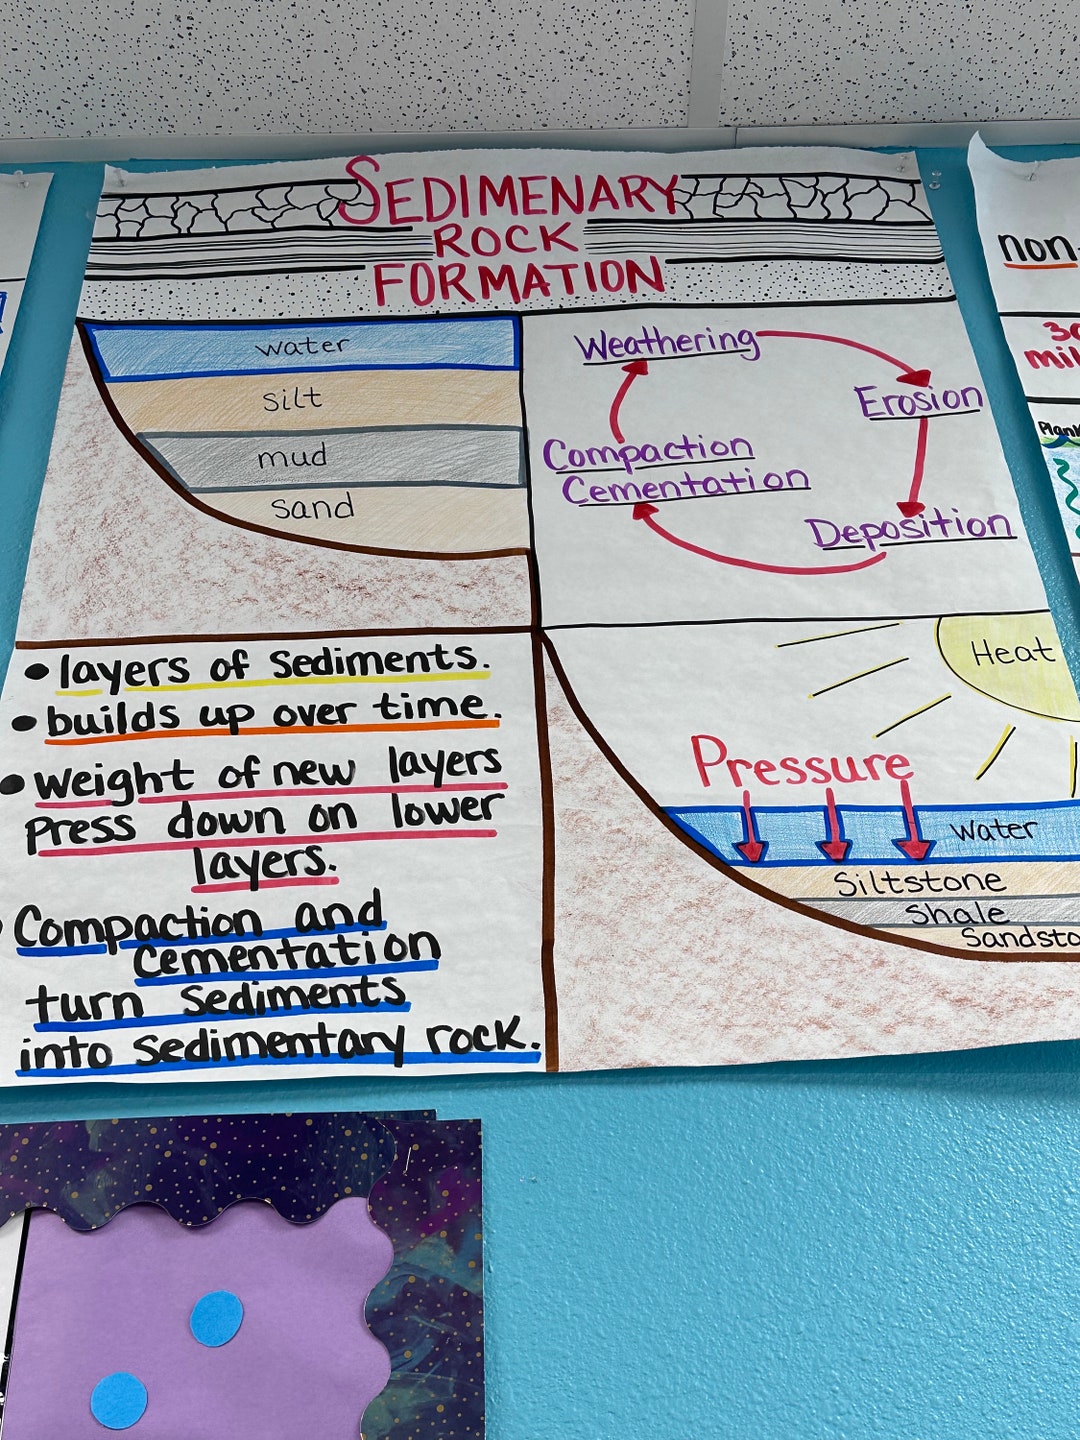 SEDIMENARY
ROCK
FORMATION
water
silt
mud
sand
Weathering
Erosion
Deposition
Compaction
Cementation
• layers of sediments.
• builds up over time.
• weight of new layers
press down on lower
layers.
Compaction and
cementation
turn sediments
into sedimentary rock.
Heat
Pressure
Water
Siltstone
Shale
Sandsto
non-
30
mil
Plank